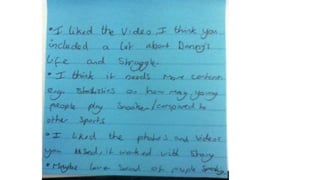 • I liked the Video, I think you
included a lot about Danny's
Life and Struggle.
• I think it needs more content
e.g. Statistics on how many young
people play Snooker/compared to
other Sports
• I liked the photos and Videos
you used, it worked with Story
• Maybe have Sound of people